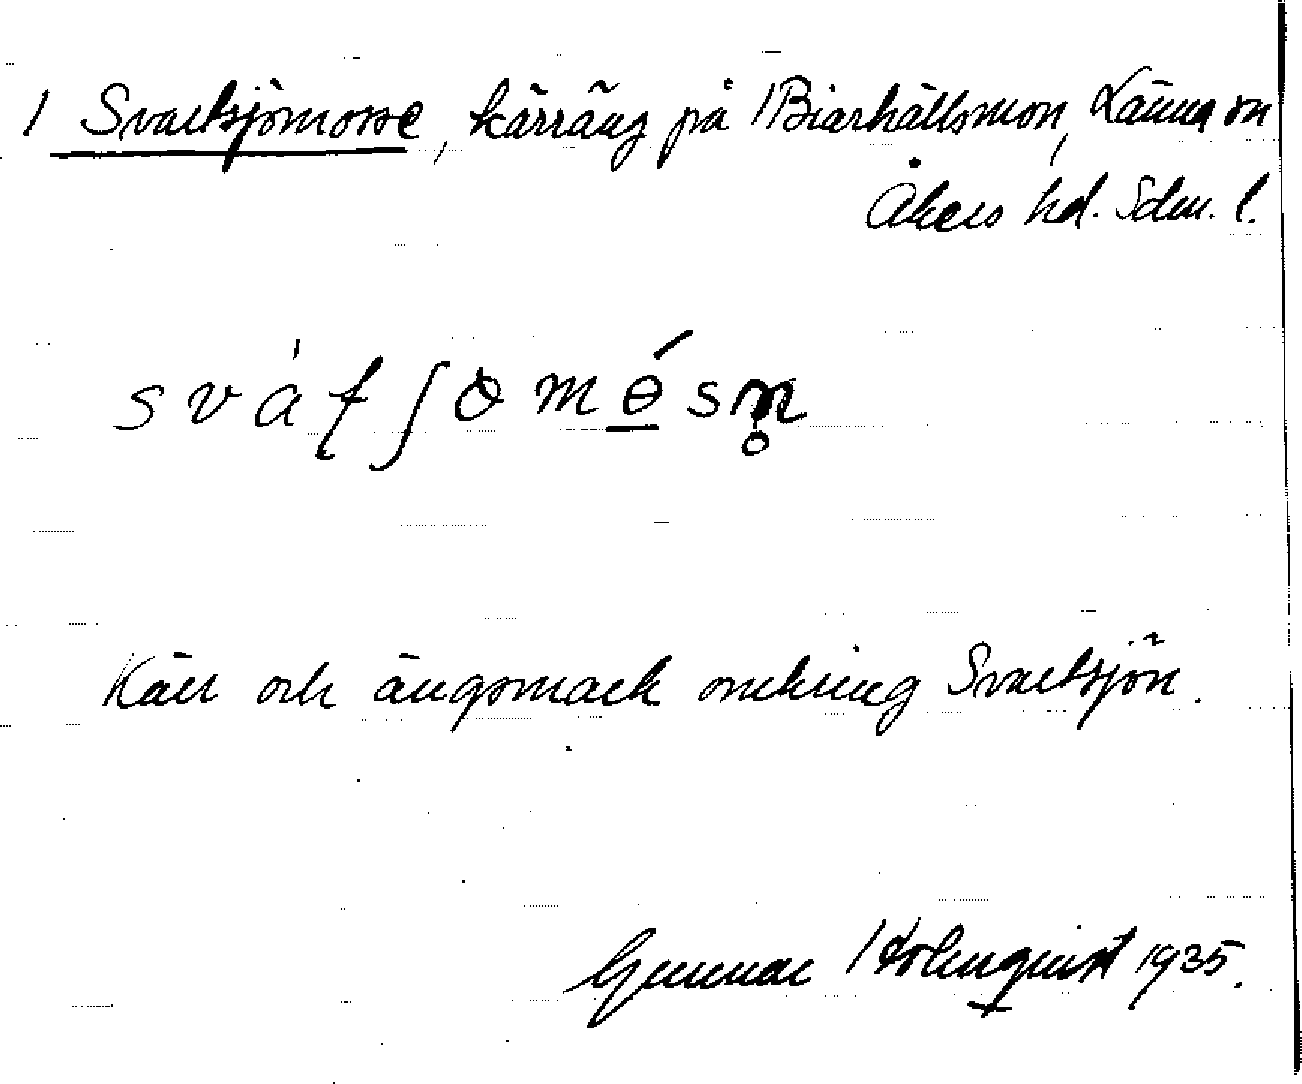 / Svartsjömosse, kärräng på /Biärhällsmon, Länna sn
Åkers hd. Sdm. l.
svátʃømǿsn̥
Kärr och ängsmark omkring Svartsjön.
Gunnar /Holmquist 1935.